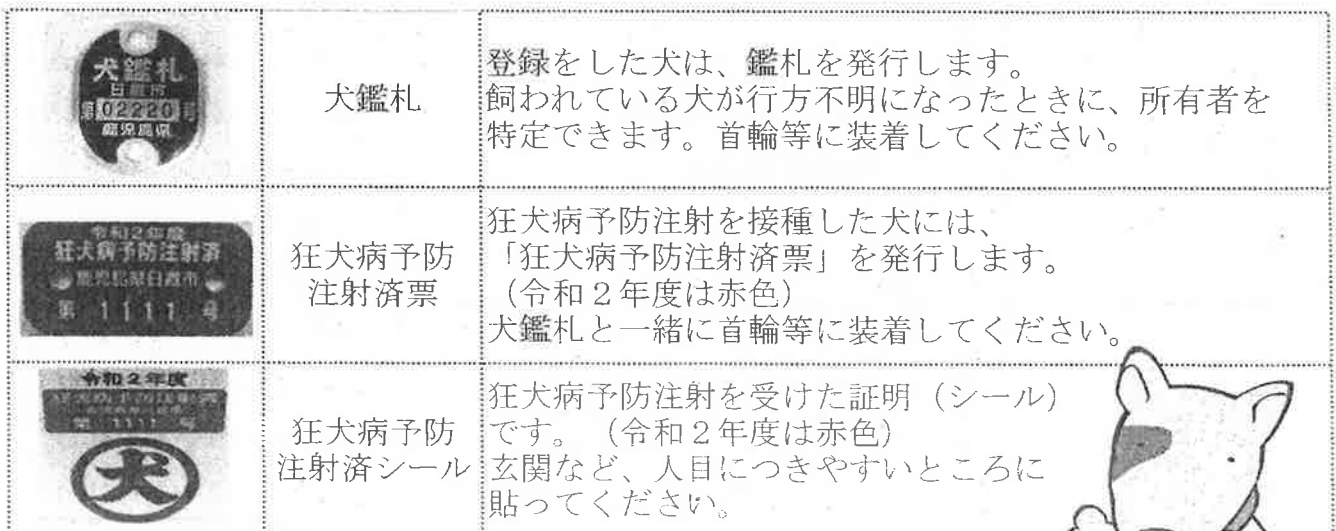 犬鑑札
日置市
第02220号
鹿児島県
犬鑑札
登録をした犬は、鑑札を発行します。
飼われている犬が行方不明になったときに、所有者を
特定できます。首輪等に装着してください。
令和2年度
狂犬病予防注射済
鹿児島県日置市
第 1111 号
狂犬病予防
注射済票
狂犬病予防注射を接種した犬には、
「狂犬病予防注射済票」を発行します。
（令和２年度は赤色）
犬鑑札と一緒に首輪等に装着してください。
令和2年度
第 1111 号
犬
狂犬病予防
注射済シール
狂犬病予防注射を受けた証明（シール）
です。（令和２年度は赤色）
玄関など、人目につきやすいところに
貼ってください。